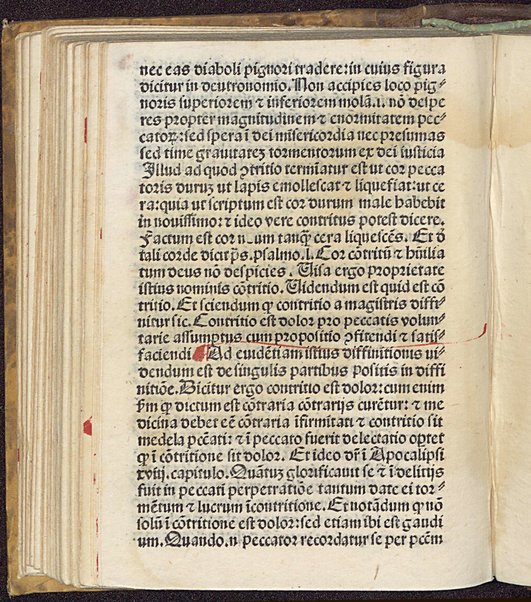 nec eas diaboli pignori tradere: in cuius figura
dicitur in deutronomio. Non accipies loco pig⸗
noris superiorem ⁊ inferiorem molā.i. nō despe
res propter magnitudinem ⁊ enormitatem pec⸗
catoꝝ: sed spera ī dei misericordia nec presumas
sed time grauitatez tormentorum ex dei iusticia
Illud ad quod ꝯtritio termīatur est ut cor pecca
toris duruꝫ ut lapis emollescat ⁊ liquefiat: ut ce
ra: quia ut scriptum est cor durum male habebit
in nouissimo: ⁊ ideo vere contritus potest dicere.
Factum est cor um tanqꝫ cera liquescēs. Et d̄
tali corde dicit ꝓs. psalmo.l. Cor cōtritū ⁊ hūilia
tum deus nō despicies. Visa ergo proprietate
istius nominis cōtritio. Videndum est quid est cō
tritio. Et sciendum ꝙ contritio a magistris diffi⸗
nitur sic. Contritio est dolor pro peccatis volun⸗
tarie assumptus cum propositio ꝯfitendi ⁊ satis⸗
faciendi Ad euidētiam istius diffinitionis ui⸗
dendum est de singulis partibus positis in diffi
nitiōe. Dicitur ergo contritio est dolor: cum enim
ẜm ꝙ dictum est cōtraria cōtrarijs curētur: ⁊ me
dicina debet eē cōtraria īfirmitati ⁊ contritio sit
medela pc̄cati: ⁊ ī peccato fuerit delectatio optet
ꝙ ī cōtritione sit dolor. Et ideo dr̄ ī Apocalipsi
xviij. capitulo. Quātuꝫ glorificauit se ⁊ ī delitijs
fuit in peccati perpetratiōe tantum date ei tor⸗
mētum ⁊ lucrum īcontritione. Et notādum ꝙ nō
solū ī cōtritione est dolor: sed etiam ibi est gaudi
um. Quando.n. peccator recordatur se per pctm̄